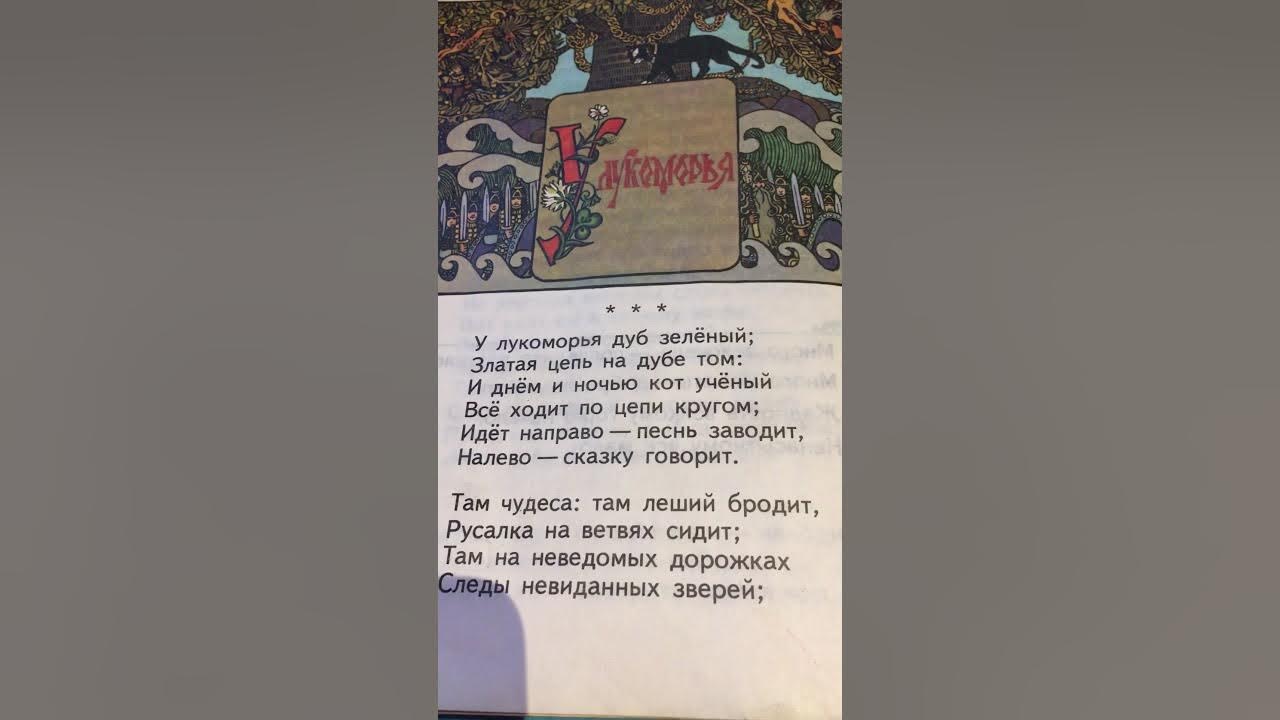 У лукоморья
* * *
У лукоморья дуб зелёный;
Златая цепь на дубе том:
И днём и ночью кот учёный
Всё ходит по цепи кругом;
Идёт направо — песнь заводит,
Налево — сказку говорит.
Там чудеса: там леший бродит,
Русалка на ветвях сидит;
Там на неведомых дорожках
Следы невиданных зверей;